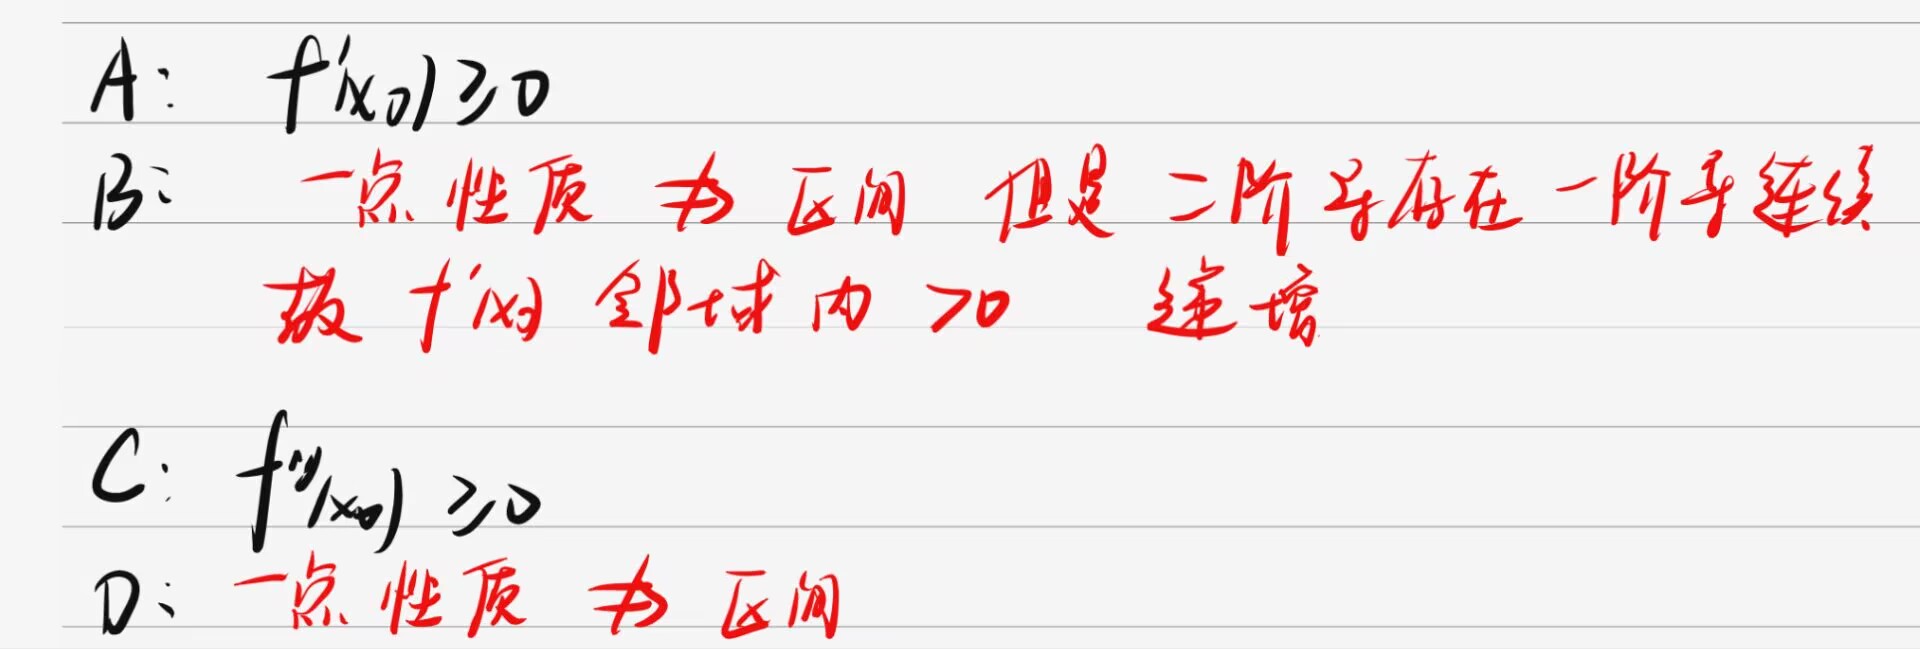 A: f'(x₀)≥0
B: 一点性质 ⇏ 区间 但是 二阶导存在 一阶导连续
故 f'(x₀) 邻域内 >0 递增
C: f''(x₀) ≥0
D: 一点性质 ⇏ 区间